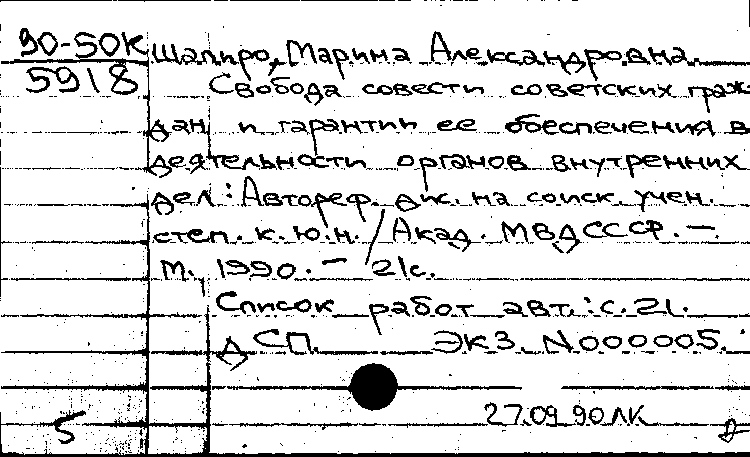 90-50К
5918
Шапиро, Марина Александровна.
Свобода совести советских граж-
дан и гарантии ее обеспечения в
деятельности органов внутренних
дел: Автореф. дис. на соиск. учен.
степ. к.ю.н. / Акад. МВД СССР. —
М., 1990. — 21с.
Список работ авт.: с. 21.
ДСП. Экз. N000005.
27.09.90 ЛК
5